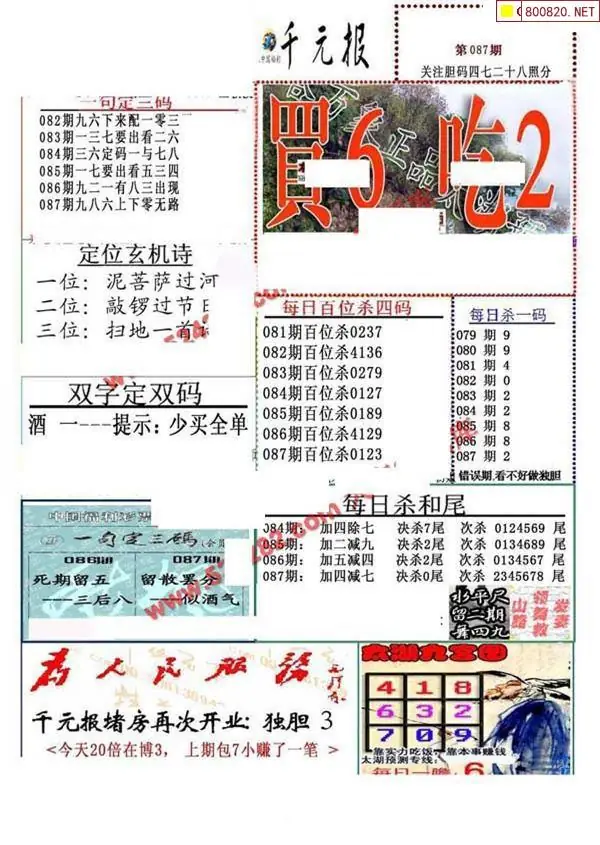 800820.NET
千元报
第087期
关注胆码四七二十八照分
一句定三码
082期九六下来配一零三
083期一三七要出看二六
084期三六定码一与七八
085期一七要出看五三四
086期九二一有八三出现
087期九八六上下零无路
買6吃2
定位玄机诗
一位：泥菩萨过河
二位：敲锣过节日
三位：扫地一首
每日百位杀四码
081期百位杀0237
082期百位杀4136
083期百位杀0279
084期百位杀0127
085期百位杀0189
086期百位杀4129
087期百位杀0123
每日杀一码
079 期 9
080 期 9
081 期 4
082 期 0
083 期 2
084 期 2
085 期 8
086 期 8
087 期 2
错误期,看不好做独胆
双字定双码
酒 一---提示：少买全单
每日杀和尾
084期： 加四除七 决杀7尾 次杀 0124569 尾
085期： 加二减九 决杀2尾 次杀 0134689 尾
086期： 加五减四 决杀2尾 次杀 0134567 尾
087期： 加四减七 决杀0尾 次杀 2345678 尾
中国福利彩票
一句定三碼
086期 087期
死期留五 留散罢分
---三后八 ---似酒气
水平尺
留二期
舞四九
为人民服务
千元报堵房再次开业：独胆 3
<今天20倍在博3， 上期包7小赚了一笔 >
太湖九宫图
4 1 8
6 3 2
7 0 9
靠实力吃饭，靠本事赚钱
太湖预测专线：
每日一胆 6